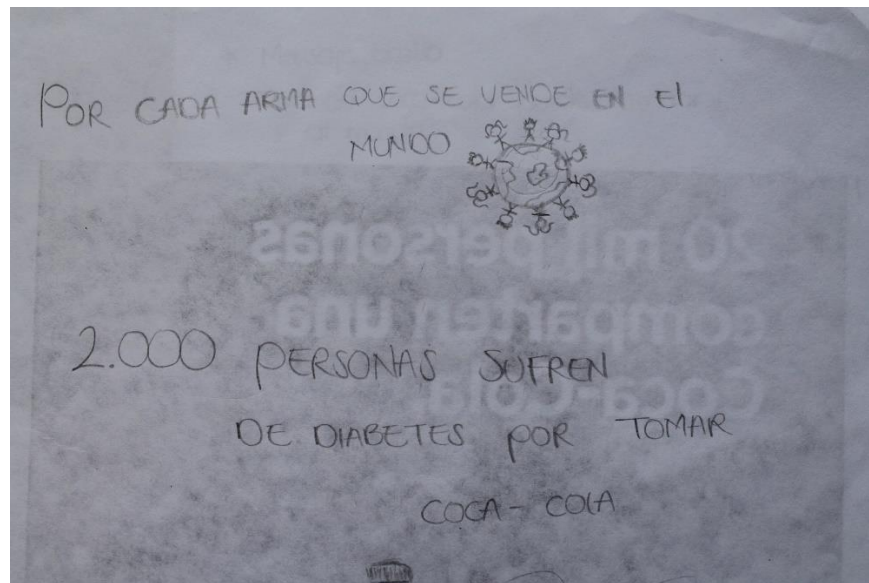 POR CADA ARMA QUE SE VENDE EN El
MUNDO
20 mil personas
comparten una
Coca-Cola.
2.000 PERSONAS SUFREN
DE DIABETES POR TOMAR
COCA - COLA